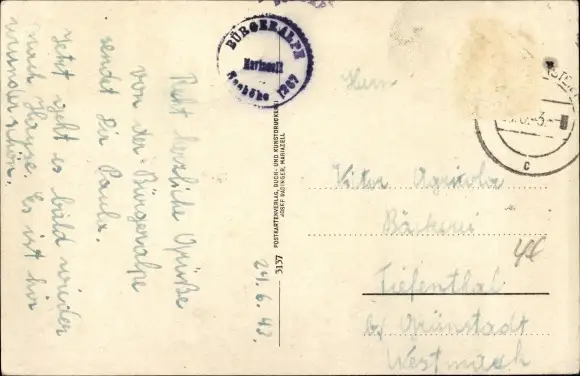 Recht herzliche Grüße
von der Bürgeralpe
sendt Dir Paula.
Jetzt geht es bald wieder
nach Hause. Es ist hir
wunderschön.
24.6.43.
BÜRGERALPE
Mariazell
Seehöhe 1267
3137 POSTKARTENVERLAG, BUCH- UND KUNSTDRUCKEREI
JOSEF RADINGER, MARIAZELL
Herrn
Viktor Agricola
Bäckerei
Tiefenthal
b/ Grünstadt
Westmark
c